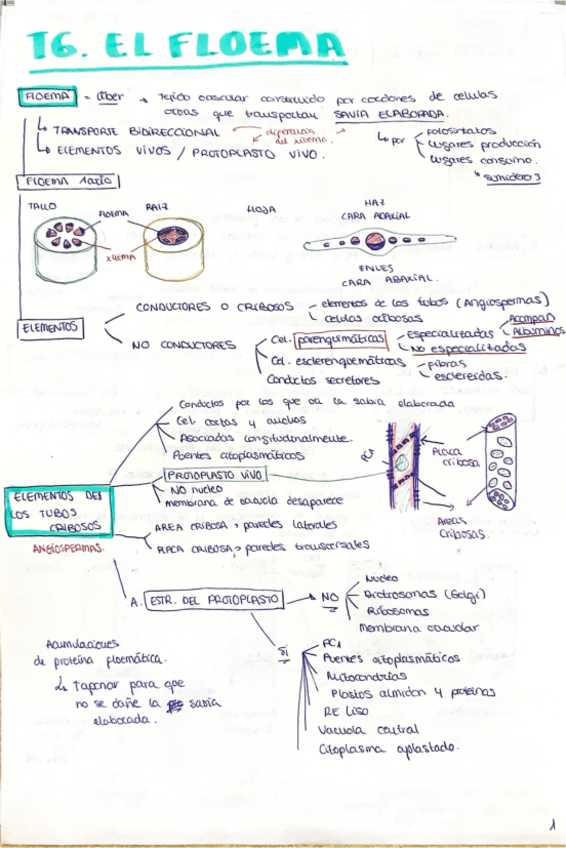 T6. EL FLOEMA
FLOEMA = líber → tejido vascular constituido por cordones de celulas
vivas que transportan SAVIA ELABORADA.
↳ TRANSPORTE BIDIRECCIONAL diferencia del xilema. → por fotosintatos
↳ ELEMENTOS VIVOS / PROTOPLASTO VIVO. lugares producción
lugares consumo.
↳ sumideros
FLOEMA 1ario
TALLO RAIZ HOJA HAZ
FLOEMA CARA ADAXIAL
XILEMA
ENVES
CARA ABAXIAL.
ELEMENTOS
CONDUCTORES O CRIBOSOS - elementos de los tubos (Angiospermas)
celulas cribosas
NO CONDUCTORES
Cel. parenquimáticas - Especializadas Acompañ
Albuminos
No especializadas
Cel. esclerenquimáticas - Fibras
esclereidas.
Conductos secretores
Conductos por los que va la sabia elaborada
Cel. cortas y anchas
Asociadas longitudinalmente.
Puentes citoplasmáticos
ELEMENTOS DE
LOS TUBOS
CRIBOSOS
ANGIOSPERMAS.
PROTOPLASTO VIVO
NO nucleo
membrana de vacuola desaparece
AREA CRIBOSA > paredes laterales
PLACA CRIBOSA > paredes transversales
Placa
cribosa
Areas
Cribosas.
A. ESTR. DEL PROTOPLASTO → NO
Núcleo
Dictiosomas (Golgi)
Ribosomas
Membrana vacuolar
SI
Puentes citoplasmáticos
Mitocondrias
Plastos almidon y proteinas
RE Liso
Vacuola central
Citoplasma aplastado.
Acumulaciones
de proteína floemática.
↳ Taponar para que
no se dañe la savia
elaborada.
1